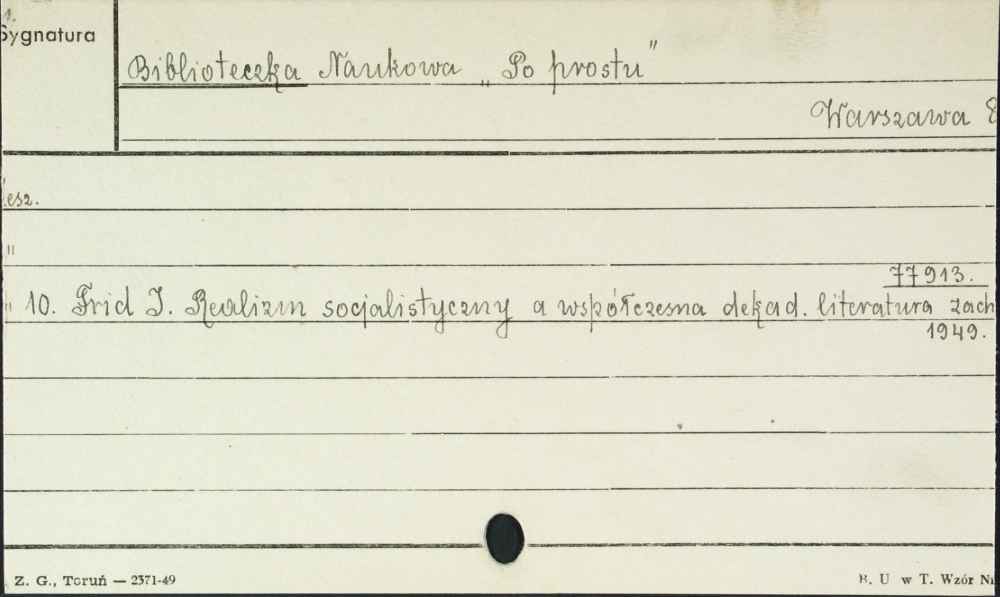 Sygnatura
Biblioteczka Naukowa „Po prostu"
Warszawa
esz.
"
77913.
" 10. Frid J. Realizm socjalistyczny a współczesna dekad. literatura zach
1949.
Z. G., Toruń — 2371-49
B. U w T. Wzór Nr